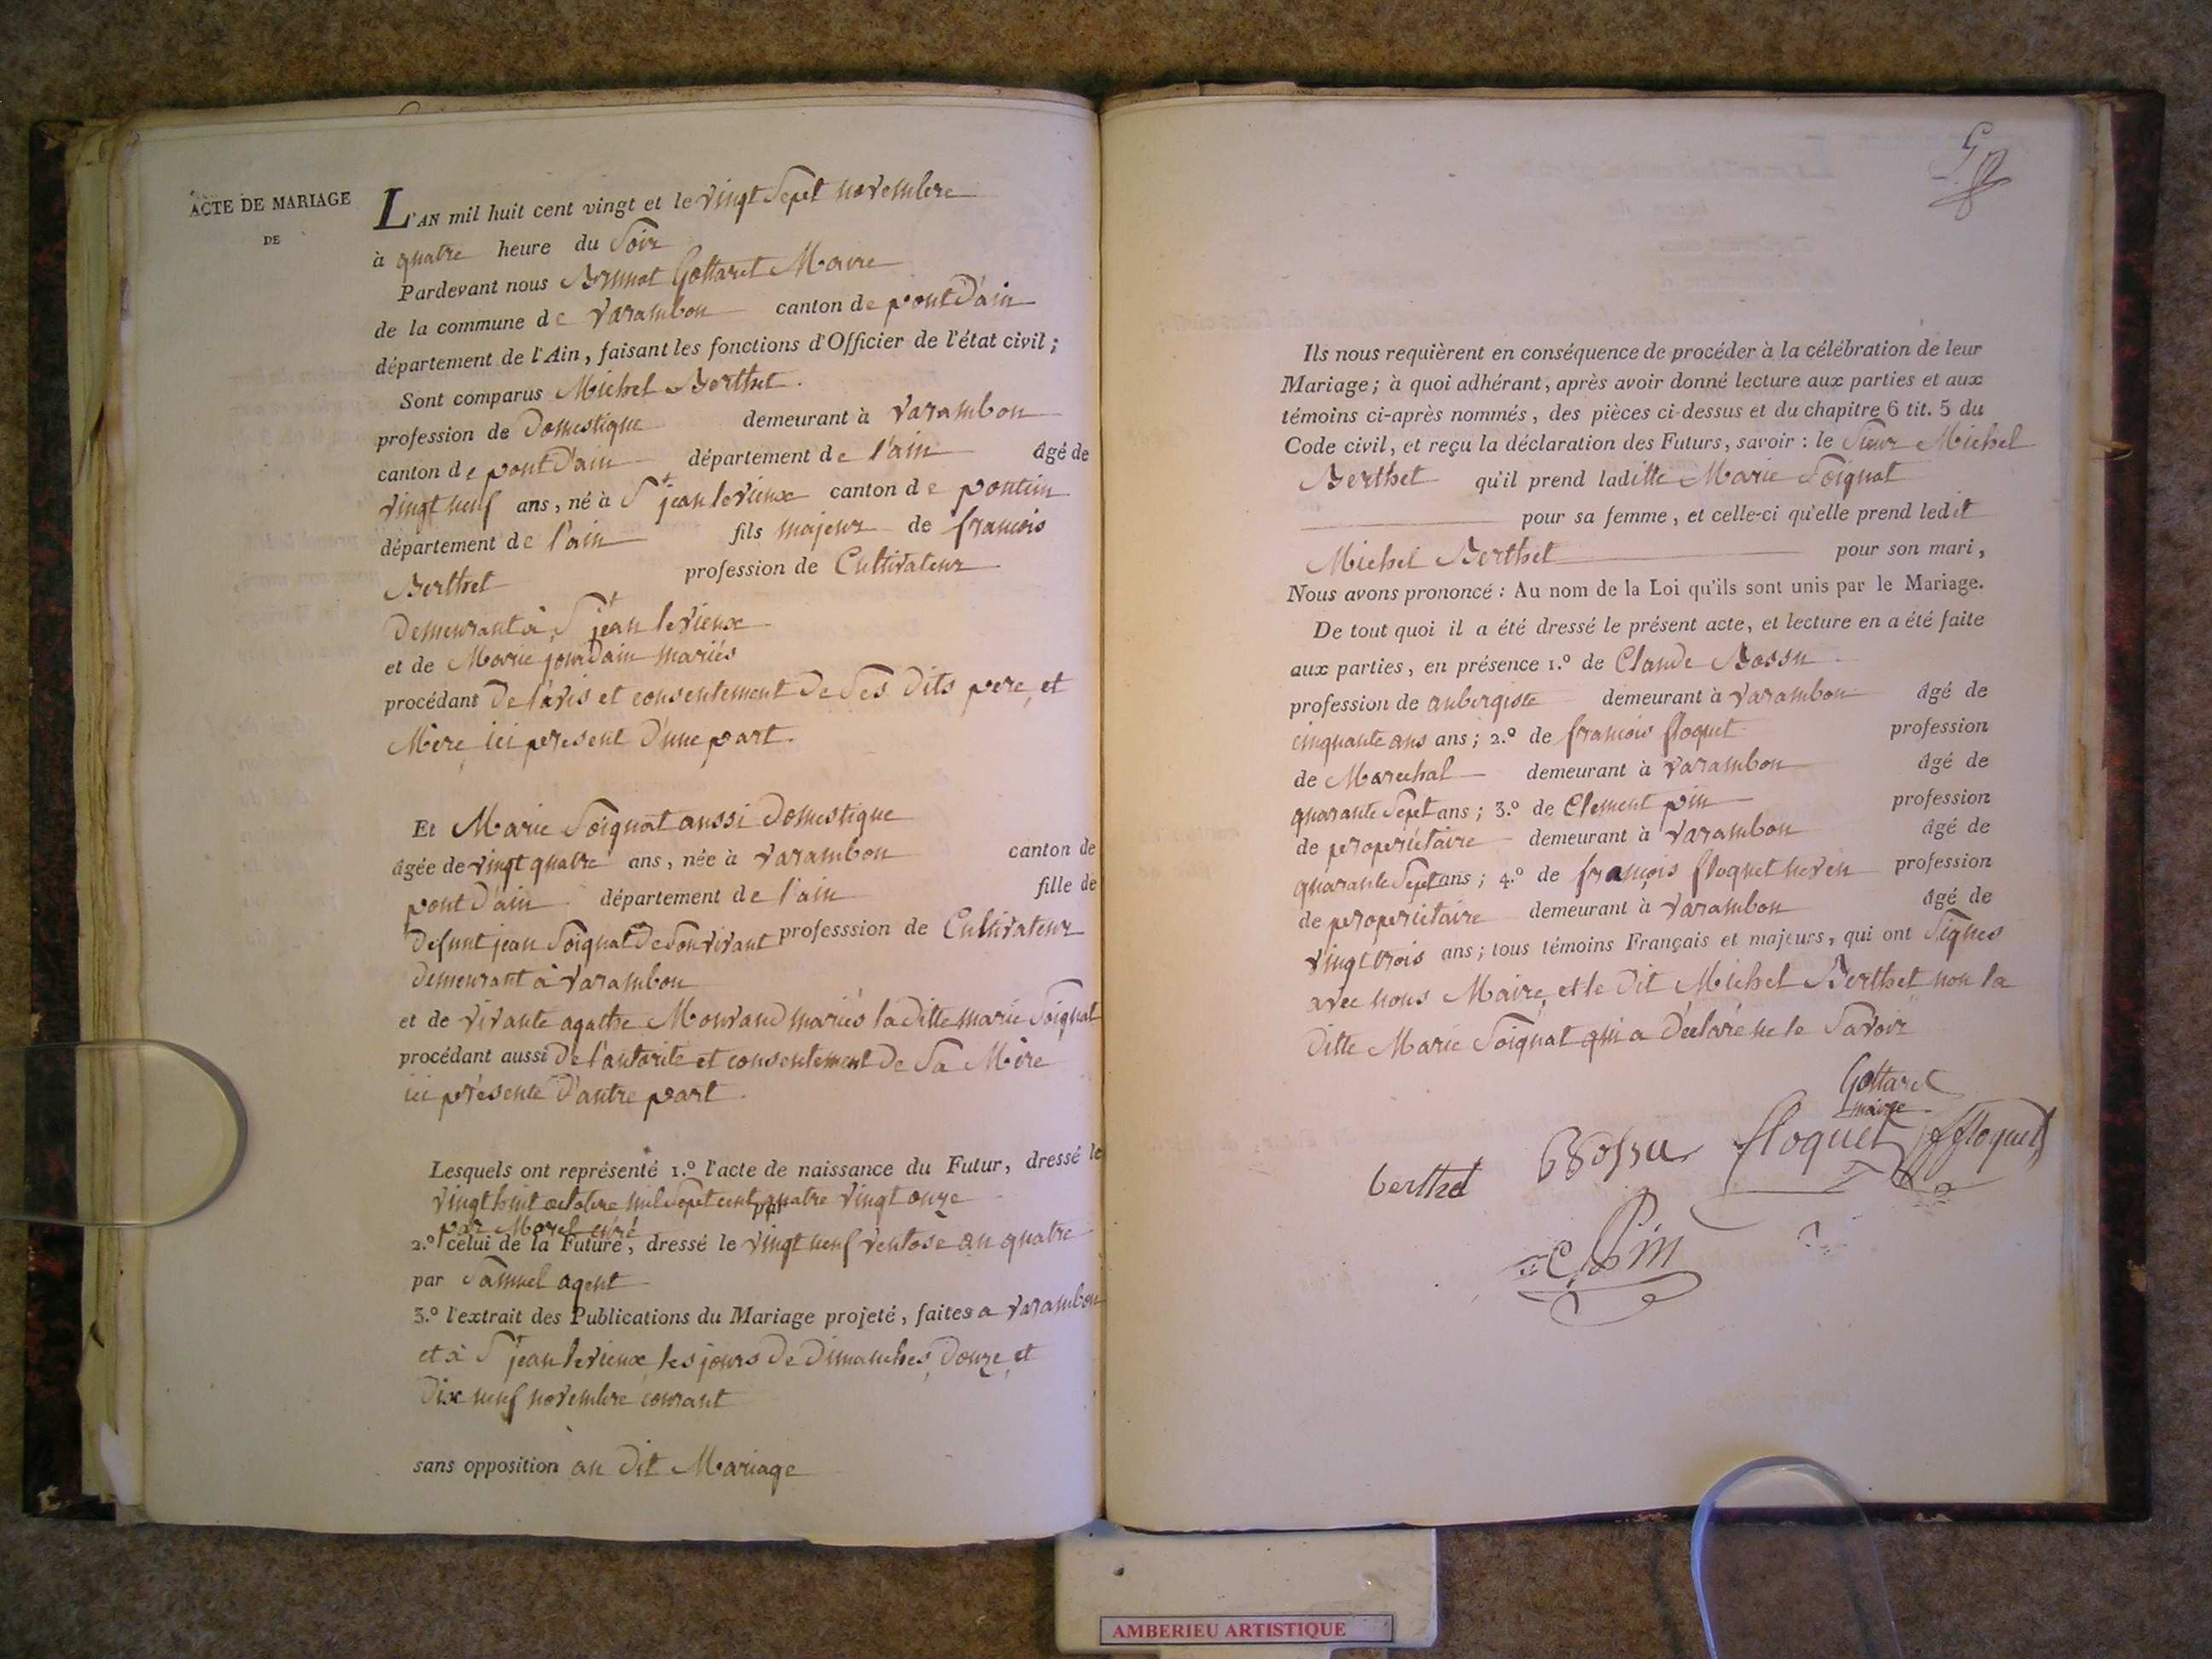 ACTE DE MARIAGE
DE
L'AN mil huit cent vingt et le vingt Sept novembre
à quatre heure du Soir
Pardevant nous Brunot Gottaret Maire
de la commune de Varambon canton de pont D'ain
département de l'Ain, faisant les fonctions d'Officier de l'état civil;
Sont comparus Michel Berthet.
profession de Domestique demeurant à Varambon
canton de pont D'ain département de l'ain âgé de
vingt neuf ans, né à St jean levieux canton de pontin
département de l'ain fils majeur de francois
Berthet profession de Cultivateur
Demeurant à St jean levieux
et de Marie jourdain mariés
procédant De l'avis et consentement De Ses Dits pere et
Mère ici present D'une part.
Et Marie Soignat aussi Domestique
âgée de vingt quatre ans, née à Varambon canton de
pont D'ain département de l'ain fille de
Defunt jean Soignat De Son vivant professsion de Cultivateur
Demeurant à Varambon
et de vivante agathe Mourand mariés la Ditte marie Soignat
procédant aussi De l'autorité et consentement De Sa Mère
ici présente D'autre part.
Lesquels ont représenté 1.º l'acte de naissance du Futur, dressé le
vingt huit octobre mil Sept cent quatre vingt onze
par Morel curé
2.º celui de la Future, dressé le vingt neuf ventose an quatre
par Samuel agent
3.º l'extrait des Publications du Mariage projeté, faites a Varambon
et à St jean levieux les jours De Dimanches Douze et
Dix neuf novembre courant
sans opposition au Dit Mariage
Ils nous requièrent en conséquence de procéder à la célébration de leur
Mariage; à quoi adhérant, après avoir donné lecture aux parties et aux
témoins ci-après nommés, des pièces ci-dessus et du chapitre 6 tit. 5 du
Code civil, et reçu la déclaration des Futurs, savoir: le Sieur Michel
Berthet qu'il prend laditte Marie Soignat
pour sa femme, et celle-ci qu'elle prend ledit
Michel Berthet pour son mari,
Nous avons prononcé: Au nom de la Loi qu'ils sont unis par le Mariage.
De tout quoi il a été dressé le présent acte, et lecture en a été faite
aux parties, en présence 1.º de Claude Bossu
profession de aubergiste demeurant à Varambon âgé de
cinquante ans ans; 2.º de francois floquet profession
de Marechal demeurant à Varambon âgé de
quarante Sept ans; 3.º de Clement pin profession
de peroperiétaire demeurant à Varambon âgé de
quarante Sept ans; 4.º de françois floquet neveu profession
de peroperiétaire demeurant à Varambon âgé de
vingt trois ans; tous témoins Français et majeurs, qui ont Signés
avec nous Maire et le Dit Michel Berthet non la
Ditte Marie Soignat qui a Déclaré ne le Savoir
Gottaret
maire
berthet Bossu floquet ffloquet
C Pin
AMBERIEU ARTISTIQUE